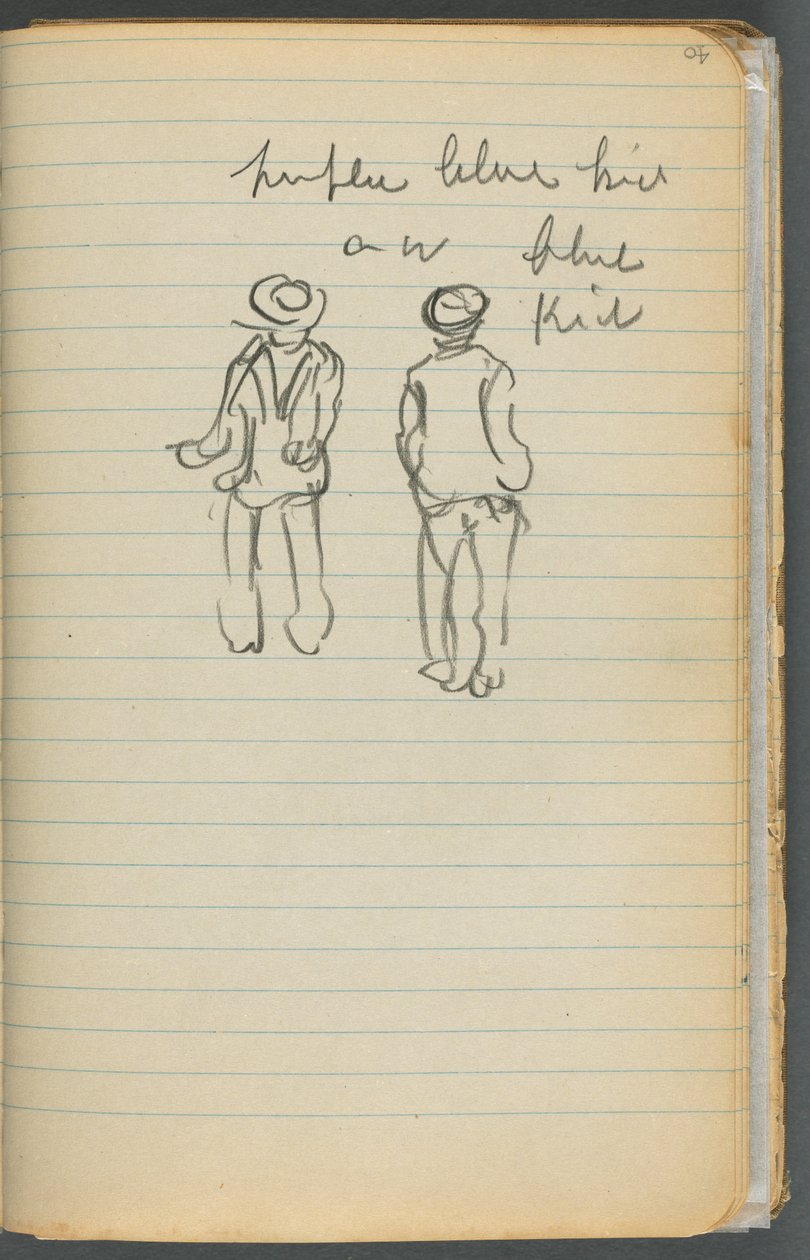 40
purple blue kid
blue
Kid